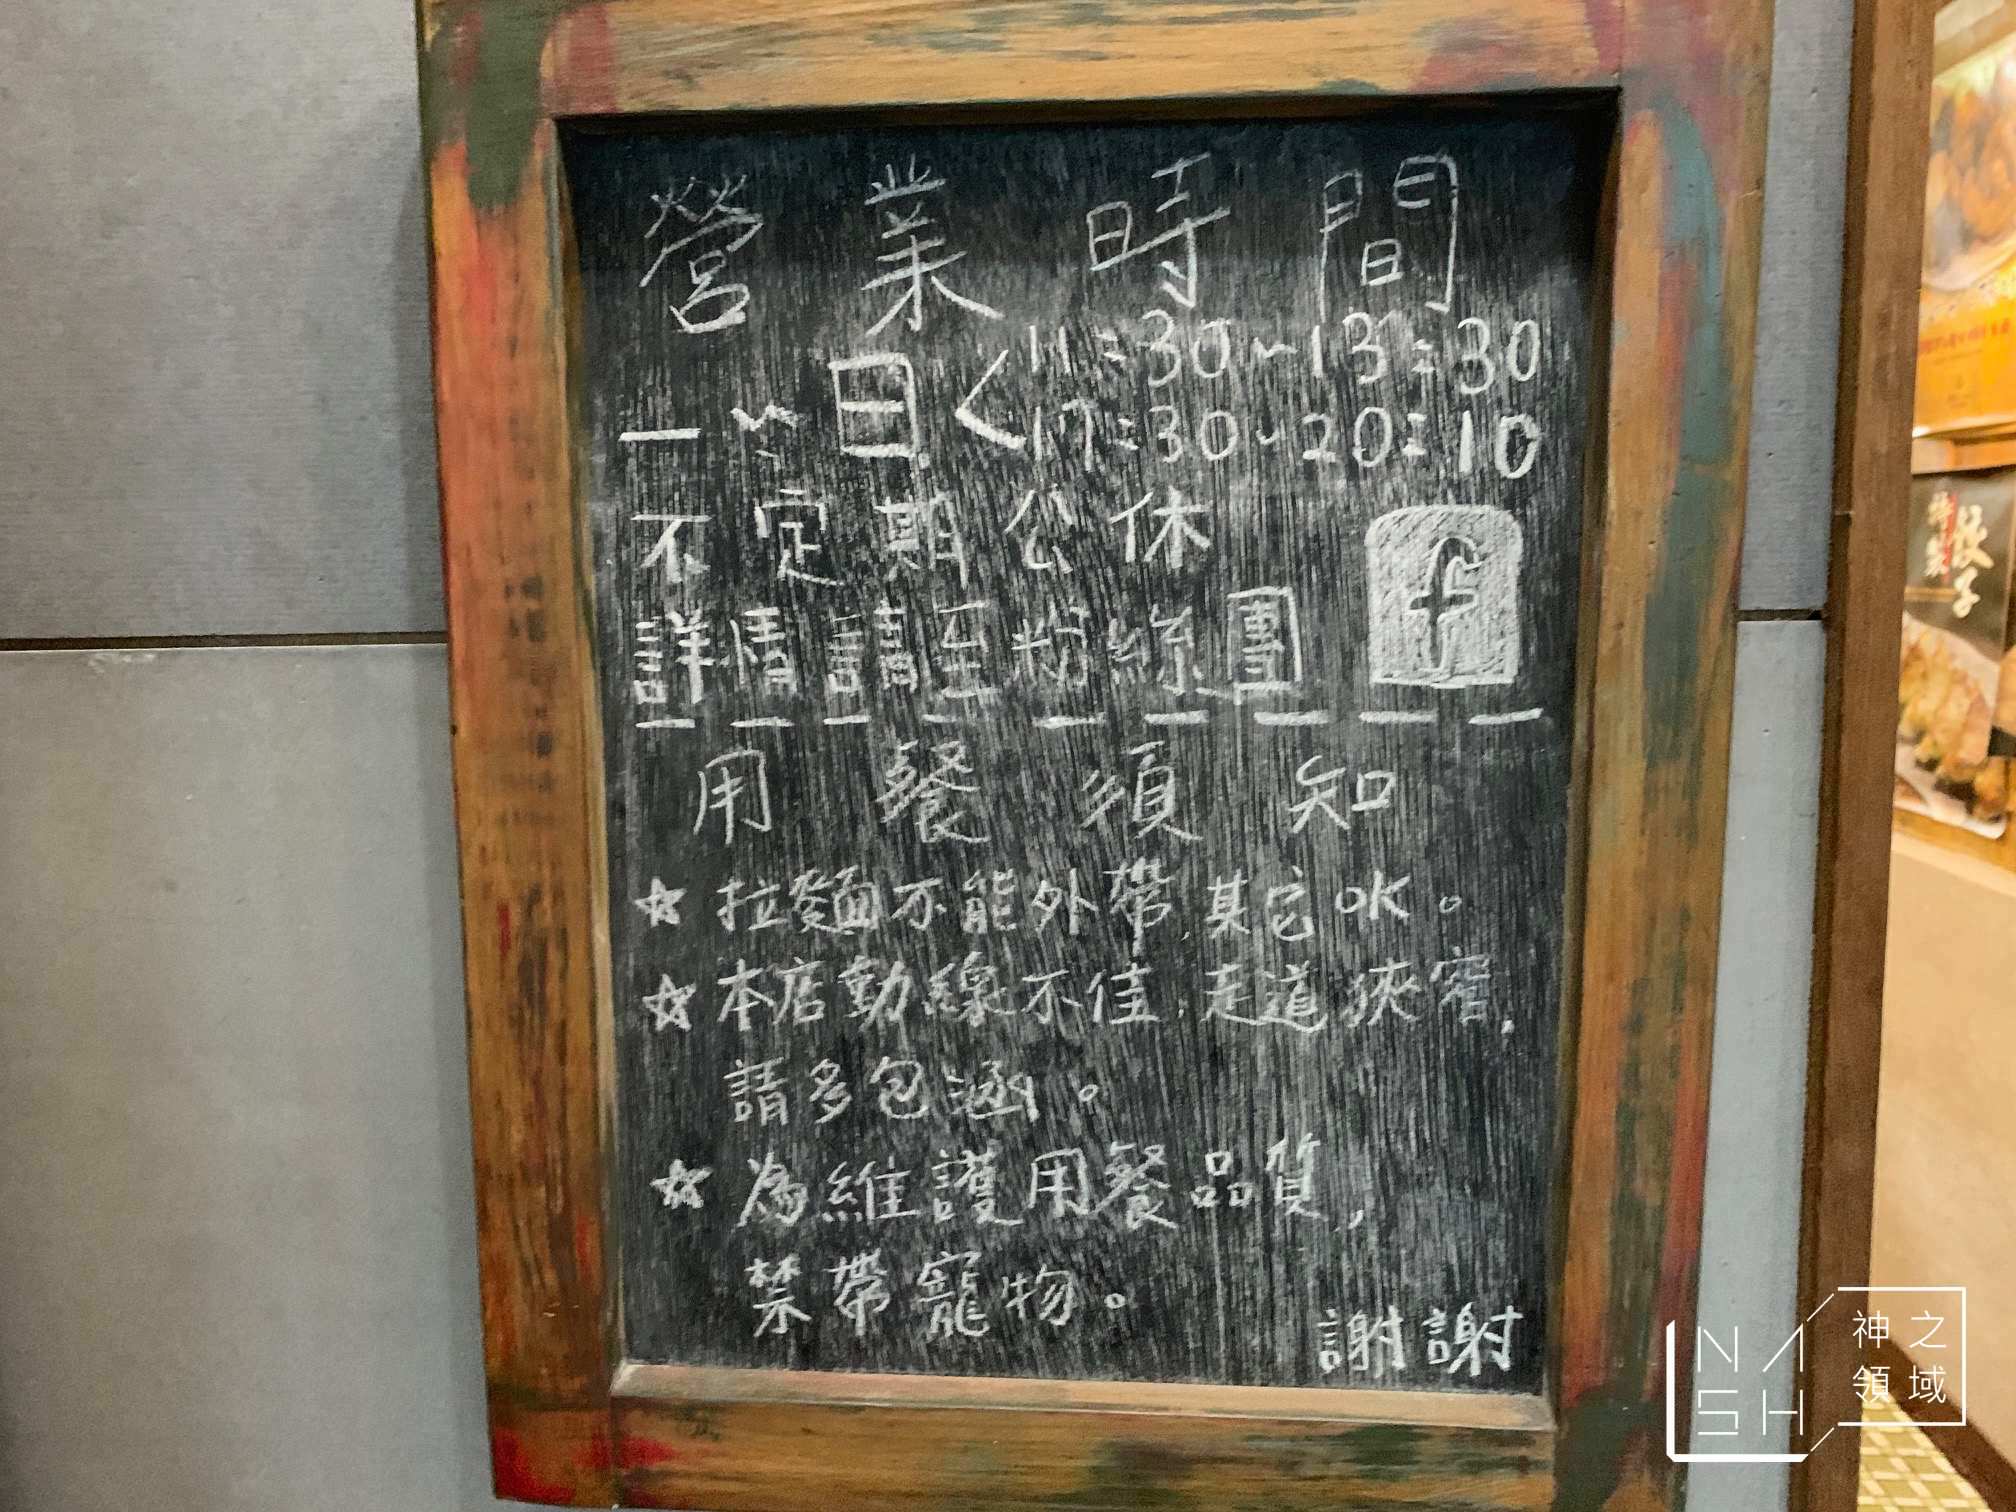 營業時間
一~日く11:30~13:30
17:30~20:10
不定期公休
詳情請至粉絲團 f
用餐須知
☆ 拉麵不能外帶,其它OK。
☆ 本店動線不佳,走道狹窄,
請多包涵。
☆ 為維護用餐品質,
禁帶寵物。
謝謝
餃子
NASH
神之
領域